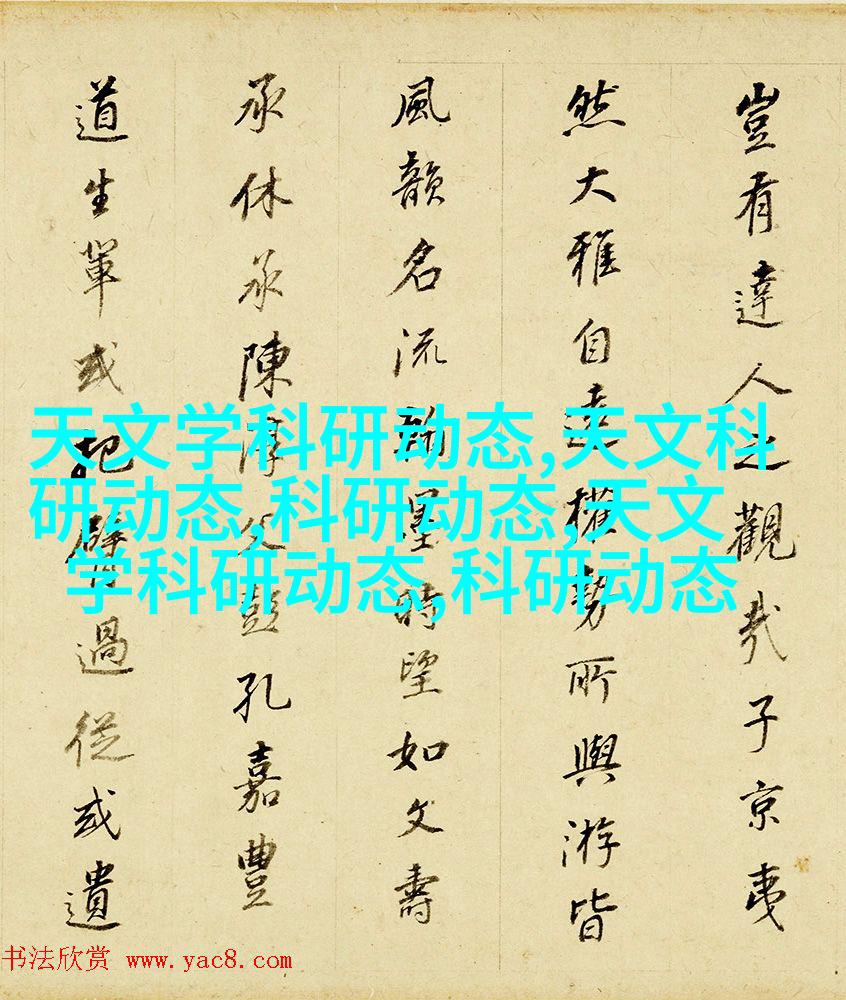 豈有達人之觀哉子京夷
然大雅自遠權勢所與游皆
風韻名流翰墨時望如文壽
承休承陳淳父彭孔嘉豐
道生輩或把臂過從或遺
天文学科研动态,天文科
研动态,科研动态,天文
学科研动态,科研动态
书法欣赏 www.yac8.com